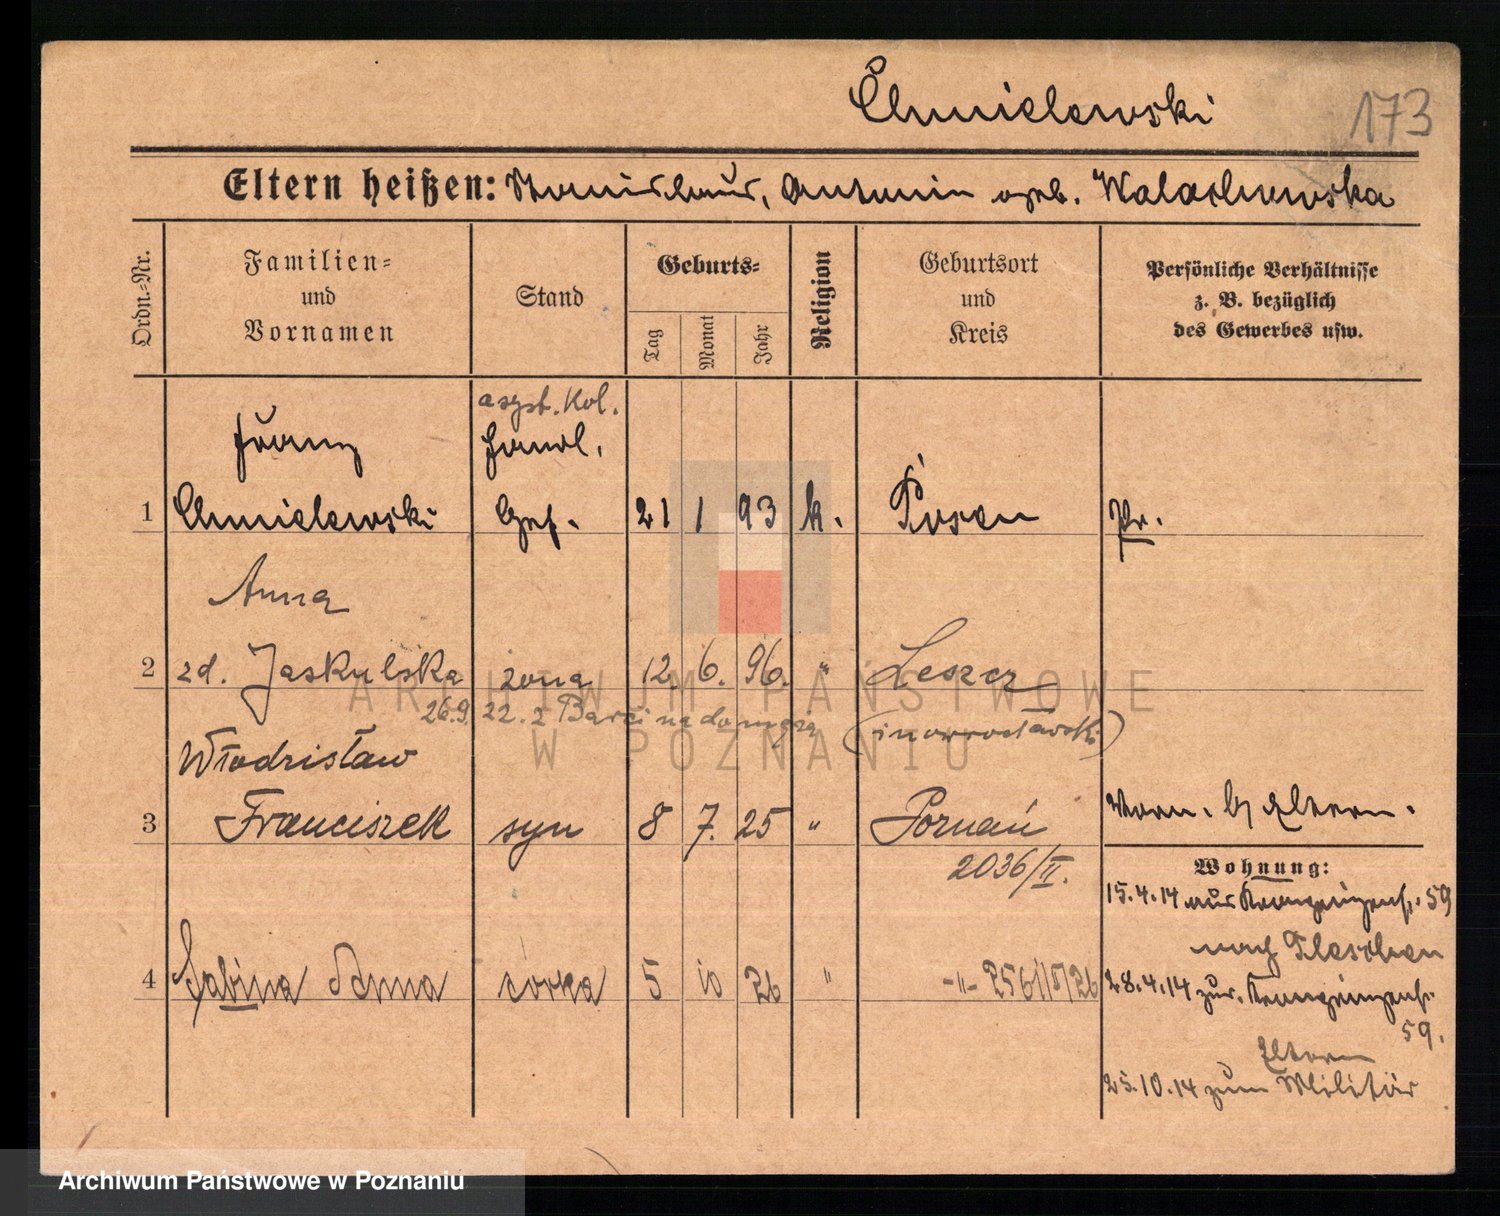 Chmielewski
173
Eltern heißen: Stanislaus, Antonin geb. Walachowska
Ordn.-Nr.
Familien-
und
Vornamen
Stand
Geburts-
Tag
Monat
Jahr
Religion
Geburtsort
und
Kreis
Persönliche Verhältnisse
z. B. bezüglich
des Gewerbes usw.
asyst. kol.
Franz
Handl.
1 Chmielewski Gef. 21 1 93 k. Posen Pr.
Anna
2 zd. Jaskulska żona 12. 6. 96. " Leszcz
26.9.22. z na do męża (inowrocławski)
Włodzisław
3 Franciszek syn 8 7. 25 " Poznań
Vorn. b/ Eltern.
2036/II.
Wohnung:
15.4.14 aus Kronprinzenstr. 59
nach Pleschen
4 Sabina Anna córka 5 10 26 " -"- 2561/5/26
28.4.14 zur. Kronprinzenstr.
59.
Eltern
25.10.14 zum Militär
ARCHIWUM PAŃSTWOWE
W POZNANIU
Archiwum Państwowe w Poznaniu